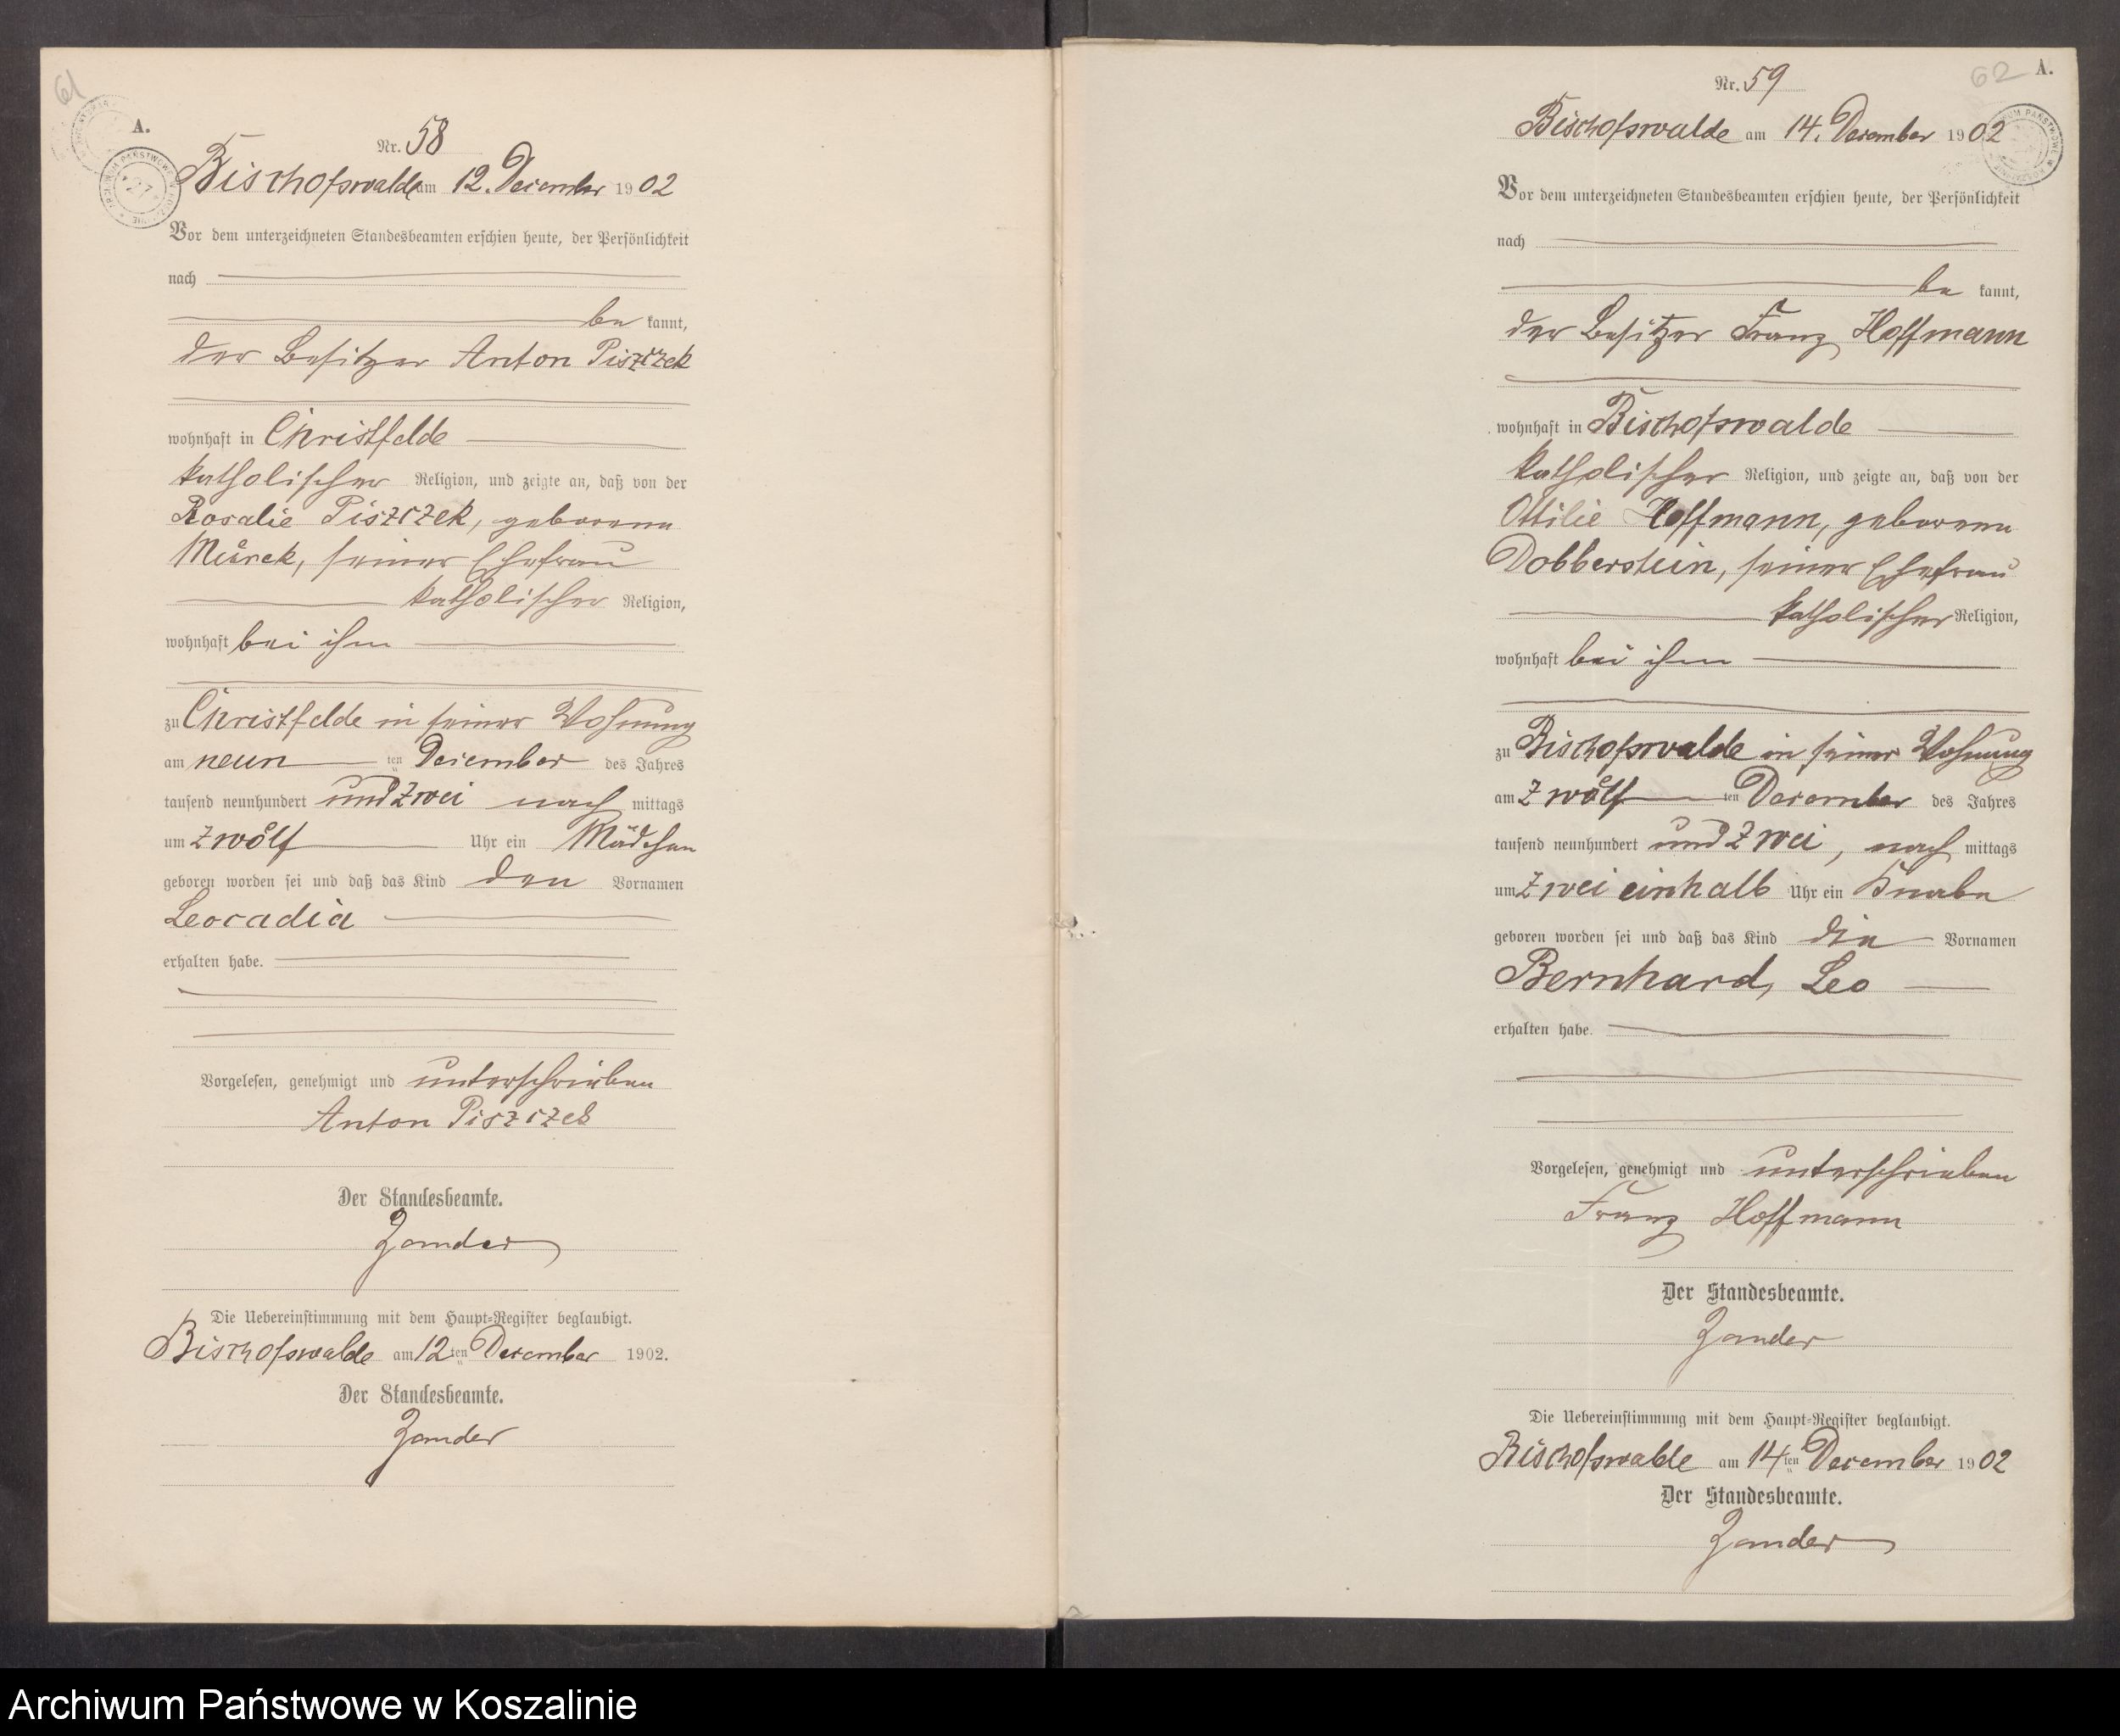 61
A.
Nr. 58
Bischofswalde am 12. December 1902
Vor dem unterzeichneten Standesbeamten erschien heute, der Persönlichkeit
nach
be kannt,
der Besitzer Anton Piszczek
wohnhaft in Christfelde
katholischer Religion, und zeigte an, daß von der
Rosalie Piszczek, geborene
seiner Ehefrau
katholischer Religion,
wohnhaft bei ihm
zu Christfelde in seiner Wohnung
am neun ten December des Jahres
tausend neunhundert und zwei nach mittags
um zwölf Uhr ein Mädchen
geboren worden sei und daß das Kind den Vornamen
Leocadia
erhalten habe.
Vorgelesen, genehmigt und unterschrieben
Anton Piszczek
Der Standesbeamte.
Zander
Die Uebereinstimmung mit dem Haupt=Register beglaubigt.
Bischofswalde am 12ten December 1902.
Der Standesbeamte.
Zander
62 A.
Nr. 59
Bischofswalde am 14. December 1902
Vor dem unterzeichneten Standesbeamten erschien heute, der Persönlichkeit
nach
be kannt,
der Besitzer Franz Hoffmann
wohnhaft in Bischofswalde
katholischer Religion, und zeigte an, daß von der
Ottilie Hoffmann, geborene
Dobberstein, seiner Ehefrau
katholischer Religion,
wohnhaft bei ihm
zu Bischofswalde in seiner Wohnung
am zwölf ten December des Jahres
tausend neunhundert und zwei, nach mittags
um zwei einhalb Uhr ein Knabe
geboren worden sei und daß das Kind die Vornamen
Bernhard, Leo
erhalten habe.
Vorgelesen, genehmigt und unterschrieben
Franz Hoffmann
Der Standesbeamte.
Zander
Die Uebereinstimmung mit dem Haupt=Register beglaubigt.
Bischofswalde am 14ten December 1902
Der Standesbeamte.
Zander
Archiwum Państwowe w Koszalinie